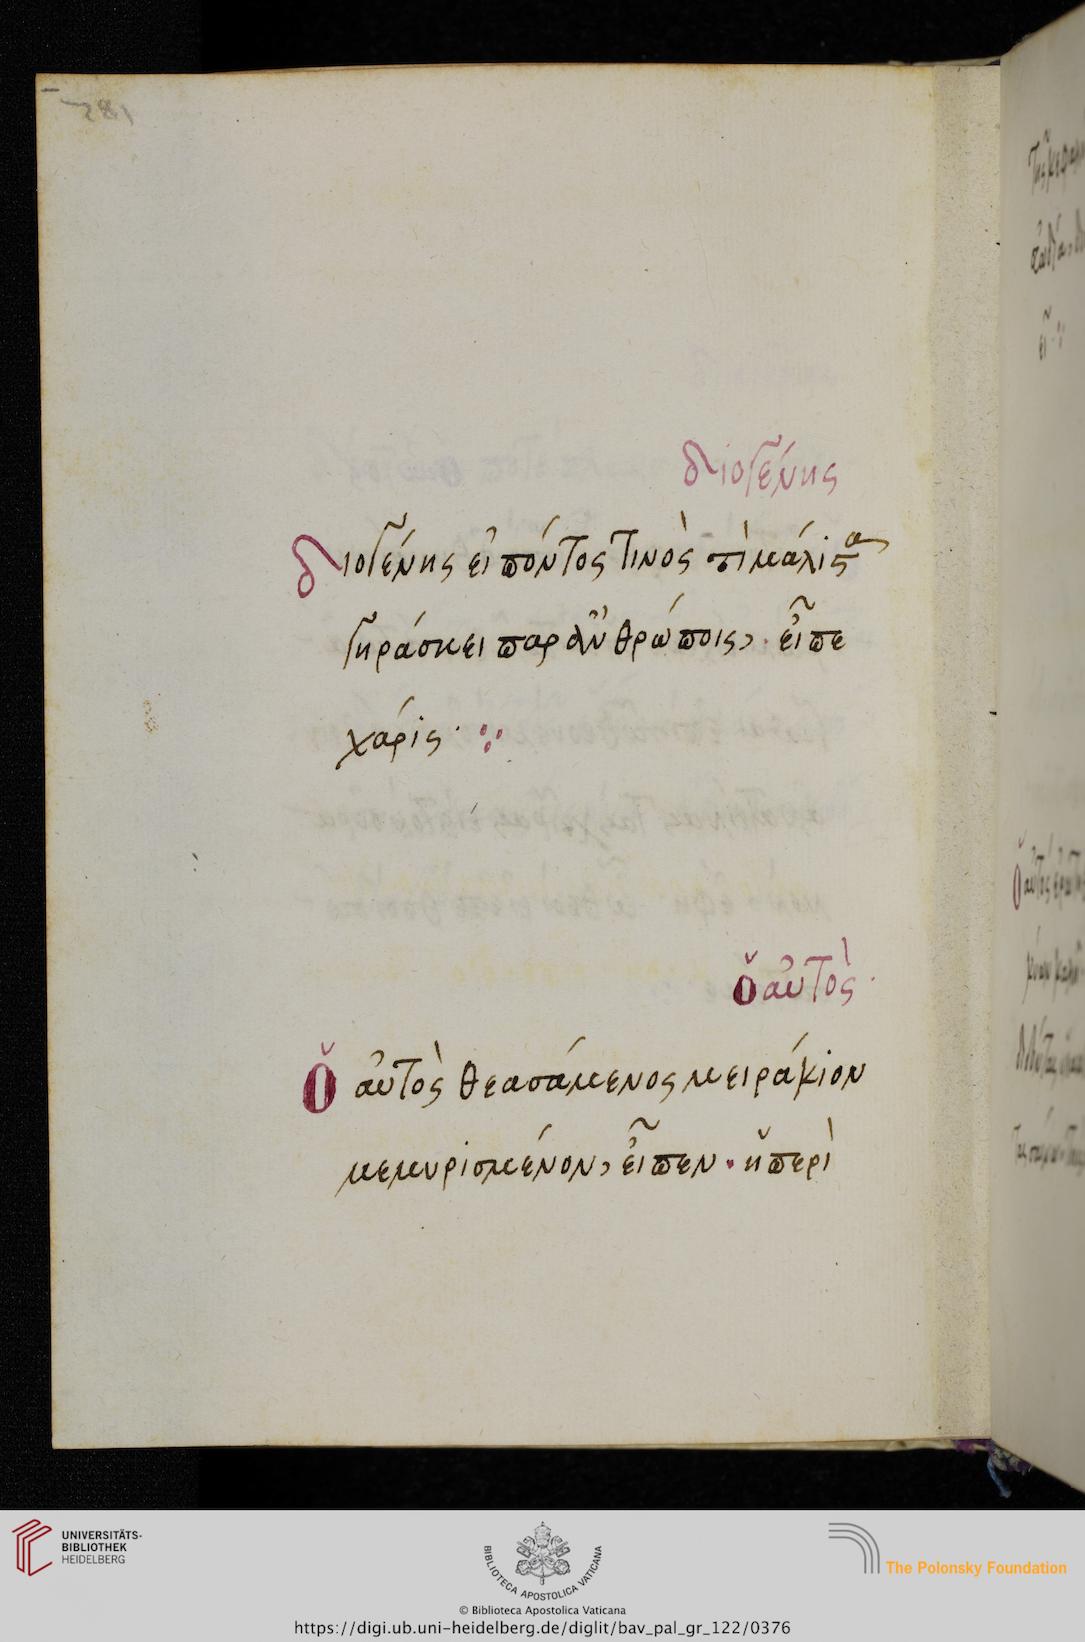 διογένης
διογένης εἰπόντος τινὸς τὶ μάλιστα
γηράσκει παρ ἀνθρώποις, · εἶπε
χάρις ·
ὁ αὐτὸς ·
ὁ αὐτὸς θεασάμενος μειράκιον
μεμυρισμένον, εἶπεν · ἡ περὶ
UNIVERSITÄTS-
BIBLIOTHEK
HEIDELBERG
BIBLIOTECA APOSTOLICA VATICANA
The Polonsky Foundation
© Biblioteca Apostolica Vaticana
https://digi.ub.uni-heidelberg.de/diglit/bav_pal_gr_122/0376